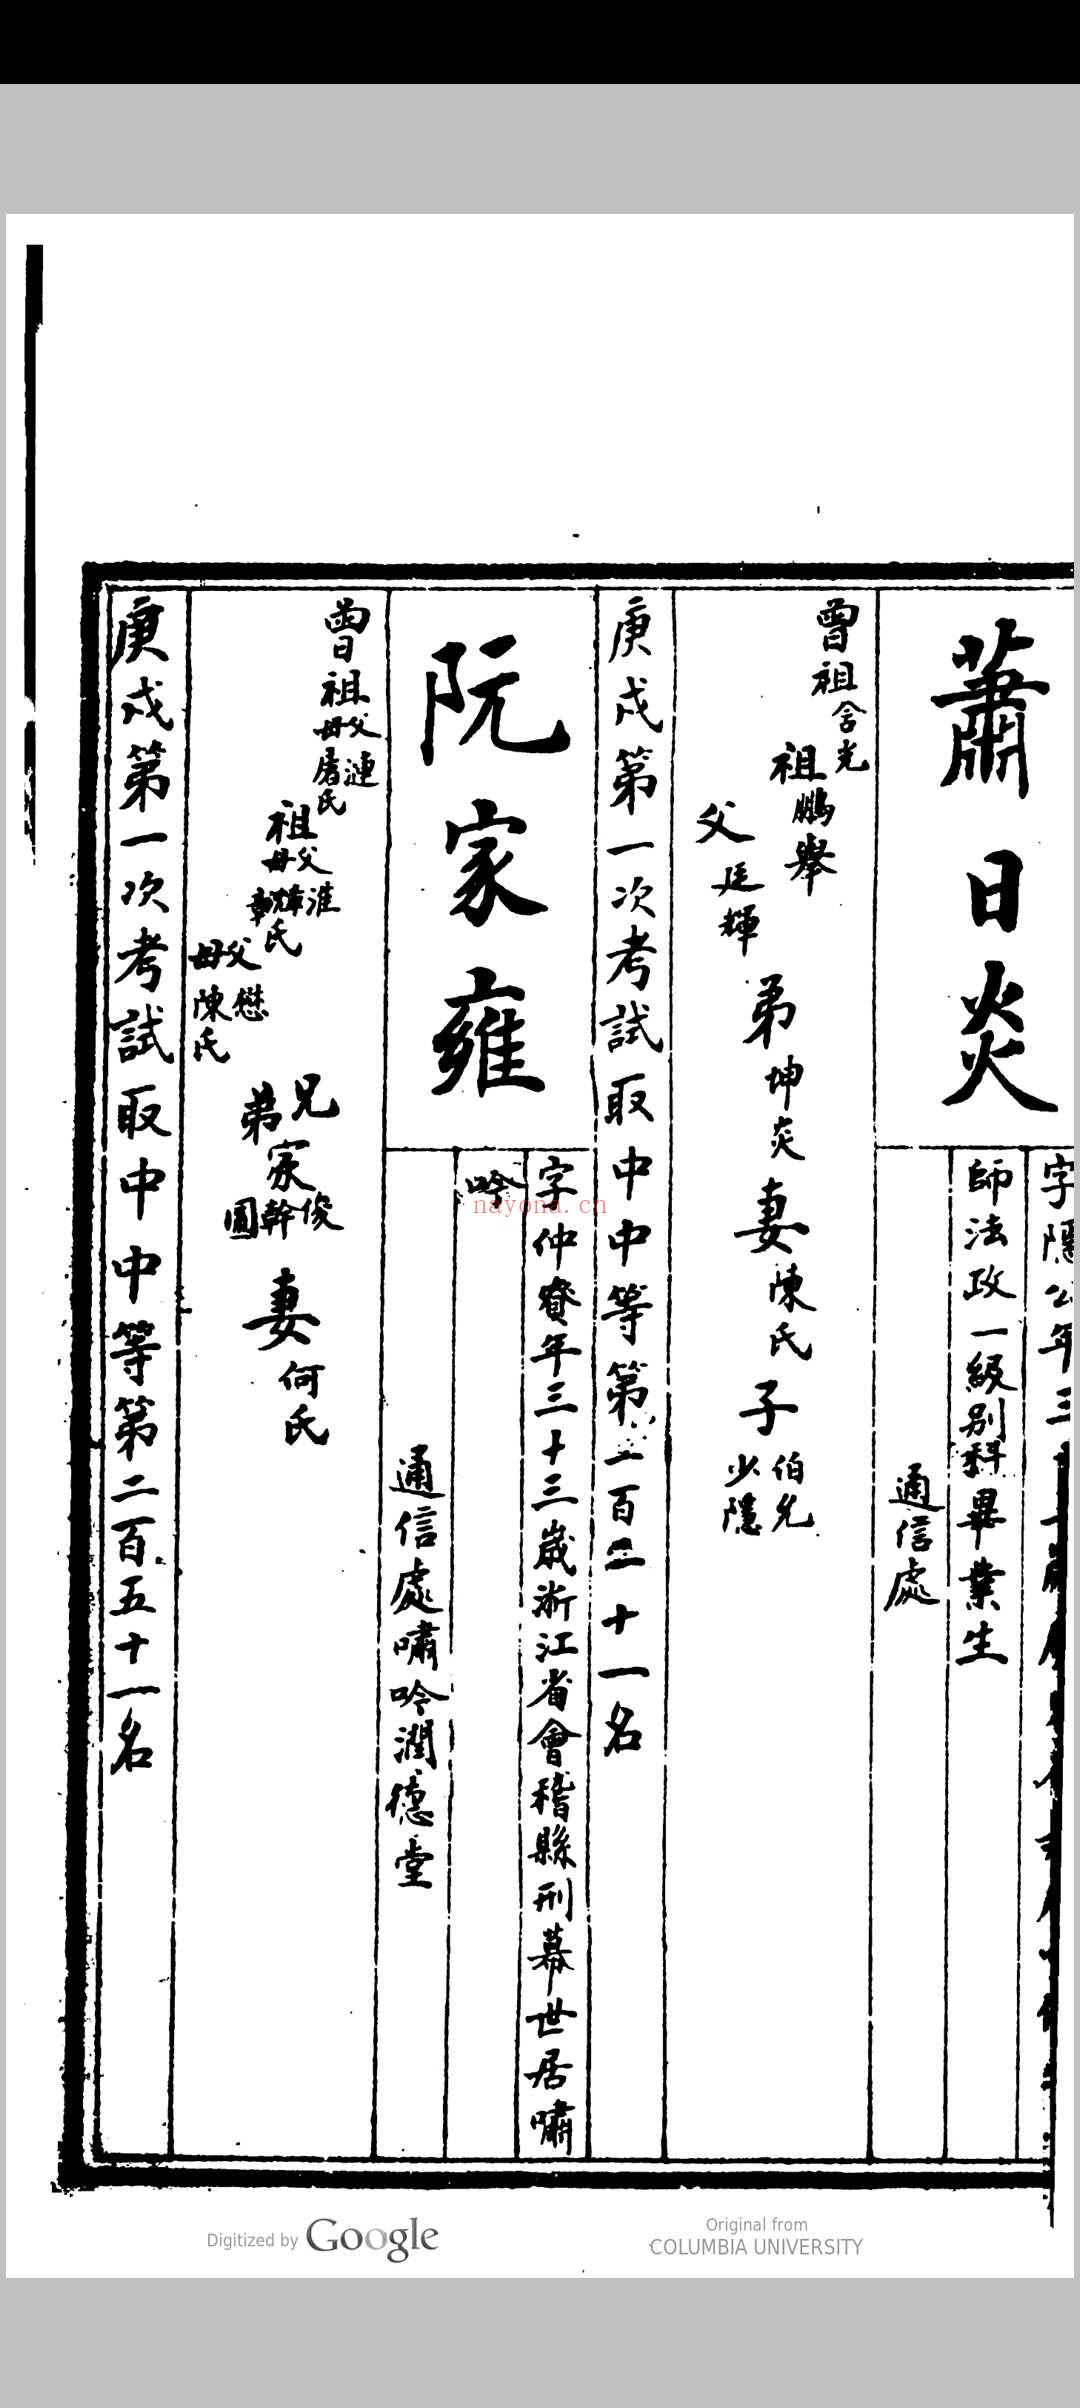 蕭日炎
字隱公年三
師法政一級別科畢業生
通信處
曾祖含光
祖鵬舉
父廷輝
弟坤炎
妻陳氏
子伯允
少隱
庚戌第一次考試取中中等第一百三十一名
阮家雍
字仲賡年三十三歲浙江省會稽縣刑幕世居嘯
吟
通信處嘯吟潤德堂
曾祖父漣
母屠氏
祖父淮
母章氏
父懋
母陳氏
兄家俊
弟幹
圃
妻何氏
庚戌第一次考試取中中等第二百五十一名
nayona.cn
Digitized by Google
Original from
COLUMBIA UNIVERSITY